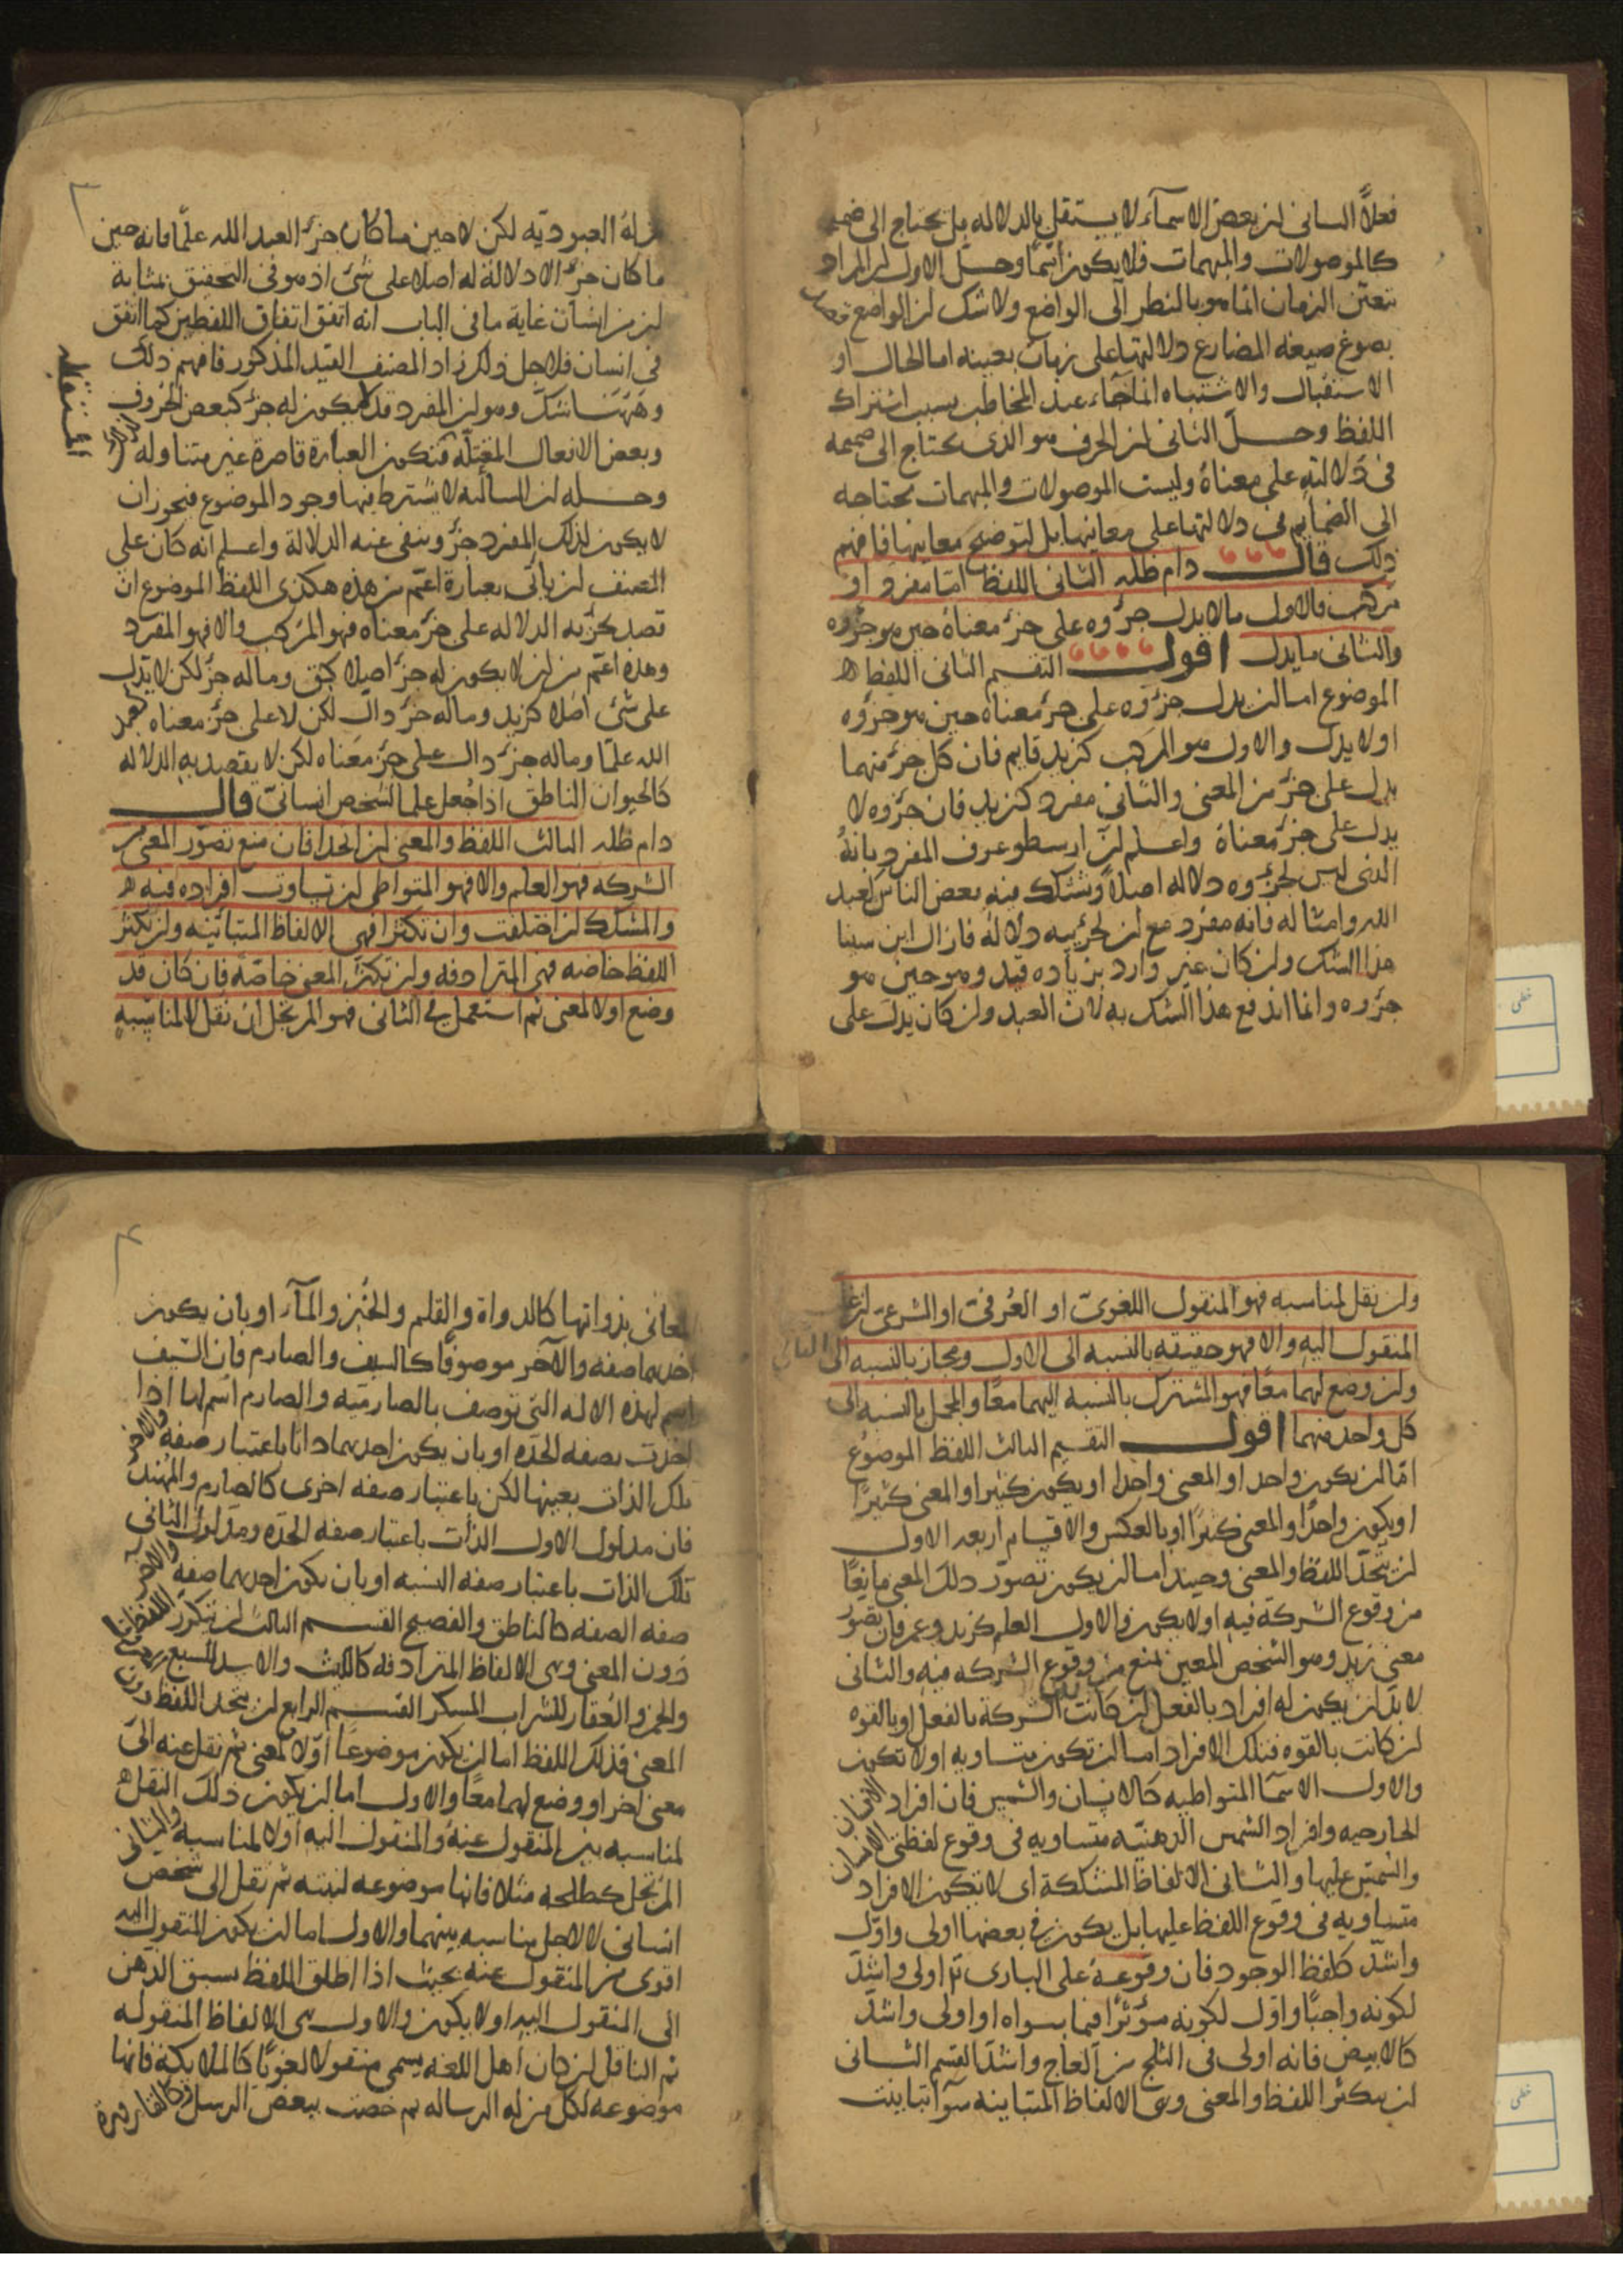 فعلاً الثاني ان بعض الاسماء لا يستقل بالدلاله بل يحتاج الى ضميمه
كالموصولات والمبهمات فلا يكون اسمًا وحلّ الاول ان المراد
بتعيّن الزمان انما هو بالنظر الى الواضع ولا شك ان الواضع
بصوغ صيغه المضارع دلالتها على زمان بعينه اما الحال او
الاستقبال والاشتباه انما جاء عند المخاطب بسبب اشتراك
اللفظ وحلّ الثاني ان الحرف هو الذي يحتاج الى ضميمه
في دلالته على معناه وليست الموصولات والمبهمات محتاجه
الى الضمايم في دلالتها على معانيها بل لتوضيح معانيها فافهم
ذلك قال دام ظله الثاني اللفظ امّا مفرد او
مركب فالاول ما لا يدل جزؤه على جزء معناه حين هو جزؤه
والثاني ما يدل اقول التقسيم الثاني اللفظ
الموضوع اما ان يدل جزؤه على جزء معناه حين هو جزؤه
او لا يدل والاول هو المركب كزيد قايم فان كل جزء منهما
يدل على جزء من المعنى والثاني مفرد كزيد فان جزؤه لا
يدل على جزء معناه واعلم انّ ارسطو عرف المفرد بانهُ
الذي ليس لجزؤه دلاله اصلاً وشكّك فيه بعض الناس كعبد
الله وامثاله فانه مفرد مع ان لجزييه دلالة فازال ابن سينا
هذا الشك وان كان غير وارد بزياده قيد وهو حين هو
جزؤه وانما اندفع هذا الشك به لان العبد وان كان يدل على
٣
له العبوديّه لكن لا حين ما كان جزء العبد الله علمًا فانه حين
ما كان جزء لا دلالة له اصلا على شئ اذ هو في التحقيق بمثابة
ان من انسان غاية ما في الباب انه اتفق اتفاق اللفظين كما اتفق
في انسان فلاجل ذلك زاد المصنف القيد المذكور فافهم ذلك
وههنا شكّ وهو ان المفرد قد لا يكون له جزء كبعض الحروف
وبعض الافعال المعتلّه فتكون العبارة قاصرة غير متناوله
وحله ان السالبه لا يشترط فيها وجود الموضوع فيجوز ان
لا يكون لذلك المفرد جزء وينفى عنه الدلالة واعلم انه كان على
المصنف ان ياتي بعبارة اعمّ من هذه هكذى اللفظ الموضوع ان
قصد بجزئه الدلاله على جزء معناه فهو المركب والا فهو المفرد
وهذه اعمّ من ان لا يكون له جزء اصلا كبق وماله جزء لكن لا يدل
على شئ اصلا كزيد وماله جزء دال لكن لا على جزء معناه كعبد
الله علمًا وماله جزء دال على جزء معناه لكن لا يقصد به الدلاله
كالحيوان الناطق اذا جُعل علما لشخص انسانيّ قال
دام ظله الثالث اللفظ والمعنى ان اتحدا فان منع تصوّر المعنى من
الشركه فهو العلم والا فهو المتواطي ان تساوت افراده فيه
والمشكك ان اختلفت وان تكثرا فهي الالفاظ المتبائنيه وان تكثر
اللفظ خاصّه فهي المترادفه وان تكثر المعنى خاصّه فان كان قد
وضع اولا لمعنى ثم استعمل في الثاني فهو المرتجل ان نقل لا لمناسبةٍ
وان نقل لمناسبه فهو المنقول اللغويّ او العُرفيّ او الشرعيّ ان غلب
المنقول اليه والا فهو حقيقه بالنسبه الى الاول ومجاز بالنسبه الى الثاني
وان وضع لهما معًا فهو المشترك بالنسبه اليهما معًا والمجمل بالنسبه الى
كل واحد منهما اقول التقسيم الثالث اللفظ الموضوع
امّا ان يكون واحدا والمعنى واحدا او يكون كثيرا والمعنى كثيرًا
او يكون واحدًا والمعنى كثيرًا او بالعكس والاقسام اربعه الاول
ان يتحد اللفظ والمعنى وحينئذ اما ان يكون تصوّر ذلك المعنى مانعًا
من وقوع الشركة فيه او لا يكون والاول العلم كزيد وعمر فان تصوّر
معنى زيد وهو الشخص المعين يمنع من وقوع الشركه فيه والثاني
لا بدّ ان يكون له افراد بالفعل ان كانت الشركة بالفعل او بالقوه
ان كانت بالقوه فتلك الافراد اما ان تكون متساويه او لا تكون
والاول الاسمآ المتواطيه كالانسان والشمس فان افراد الانسان
الخارجيه وافراد الشمس الذهنيّه متساويه في وقوع لفظتي الانسان
والشمس عليها والثاني الالفاظ المشككة اي لا تكون الافراد
متساويه في وقوع اللفظ عليها بل يكون في بعضها اولى واوّل
واشدّ كلفظ الوجود فان وقوعهُ على الباري تع اولى واشدّ
لكونه واجبًا واوّل لكونه مؤثرًا فيما سواه او اولى واشدّ
كالابيض فانه اولى في الثلج من العاج واشدّ القسم الثاني
ان يتكثر اللفظ والمعنى وهى الالفاظ المتباينه سوآ تباينت
٤
المعاني بذواتها كالدواة والقلم والخُبز والمآء او بان يكون
احدهما صفه والآخر موصوفًا كالسيف والصارم فان السّيف
اسم لهذه الاله التي توصف بالصارميّه والصارم اسم لها اذا
اخذت بصفه الحدّه او بان يكون احدهما ذاتًا باعتبار صفه والاخر
تلك الذات بعينها لكن باعتبار صفه اخرى كالصارم والمهنّد
فان مدلول الاول الذات باعتبار صفه الحدّه ومدلول الثاني
تلك الذات باعتبار صفه النسبه او بان يكون احدهما صفه والآخر
صفه الصفه كالناطق والفصيح القسم الثالث ان يتكرر اللفظ
دون المعنى وهى الالفاظ المترادفه كالليث والاسد للسبع
والخمر والعُقار للشراب المسكر القسم الرابع ان يتحد اللفظ دون
المعنى فذلك اللفظ اما ان يكون موضوعًا اوّلا لمعنى ثم نقل عنه الى
معنى اخر او وضع لهما معًا والاول اما ان يكون ذلك النقل
لمناسبه بين المنقول عنهُ والمنقول اليه او لا لمناسبه والثاني
المرتجل كطلحه مثلا فانها موضوعه لنبته ثم نقل الى شخص
انساني لا لاجل مناسبه بينهما والاول اما ان يكون المنقول اليه
اقوى من المنقول عنه بحيث اذا اطلق اللفظ سبق الذهن
الى المنقول اليه او لا يكون والاول هى الالفاظ المنقوله
ثم الناقل ان كان اهل اللغه يسمى منقولا لغويًا كالملايكة فانها
موضوعه لكل من له الرساله ثم خصت ببعض الرسل وكالقارورة
خطي
خطي